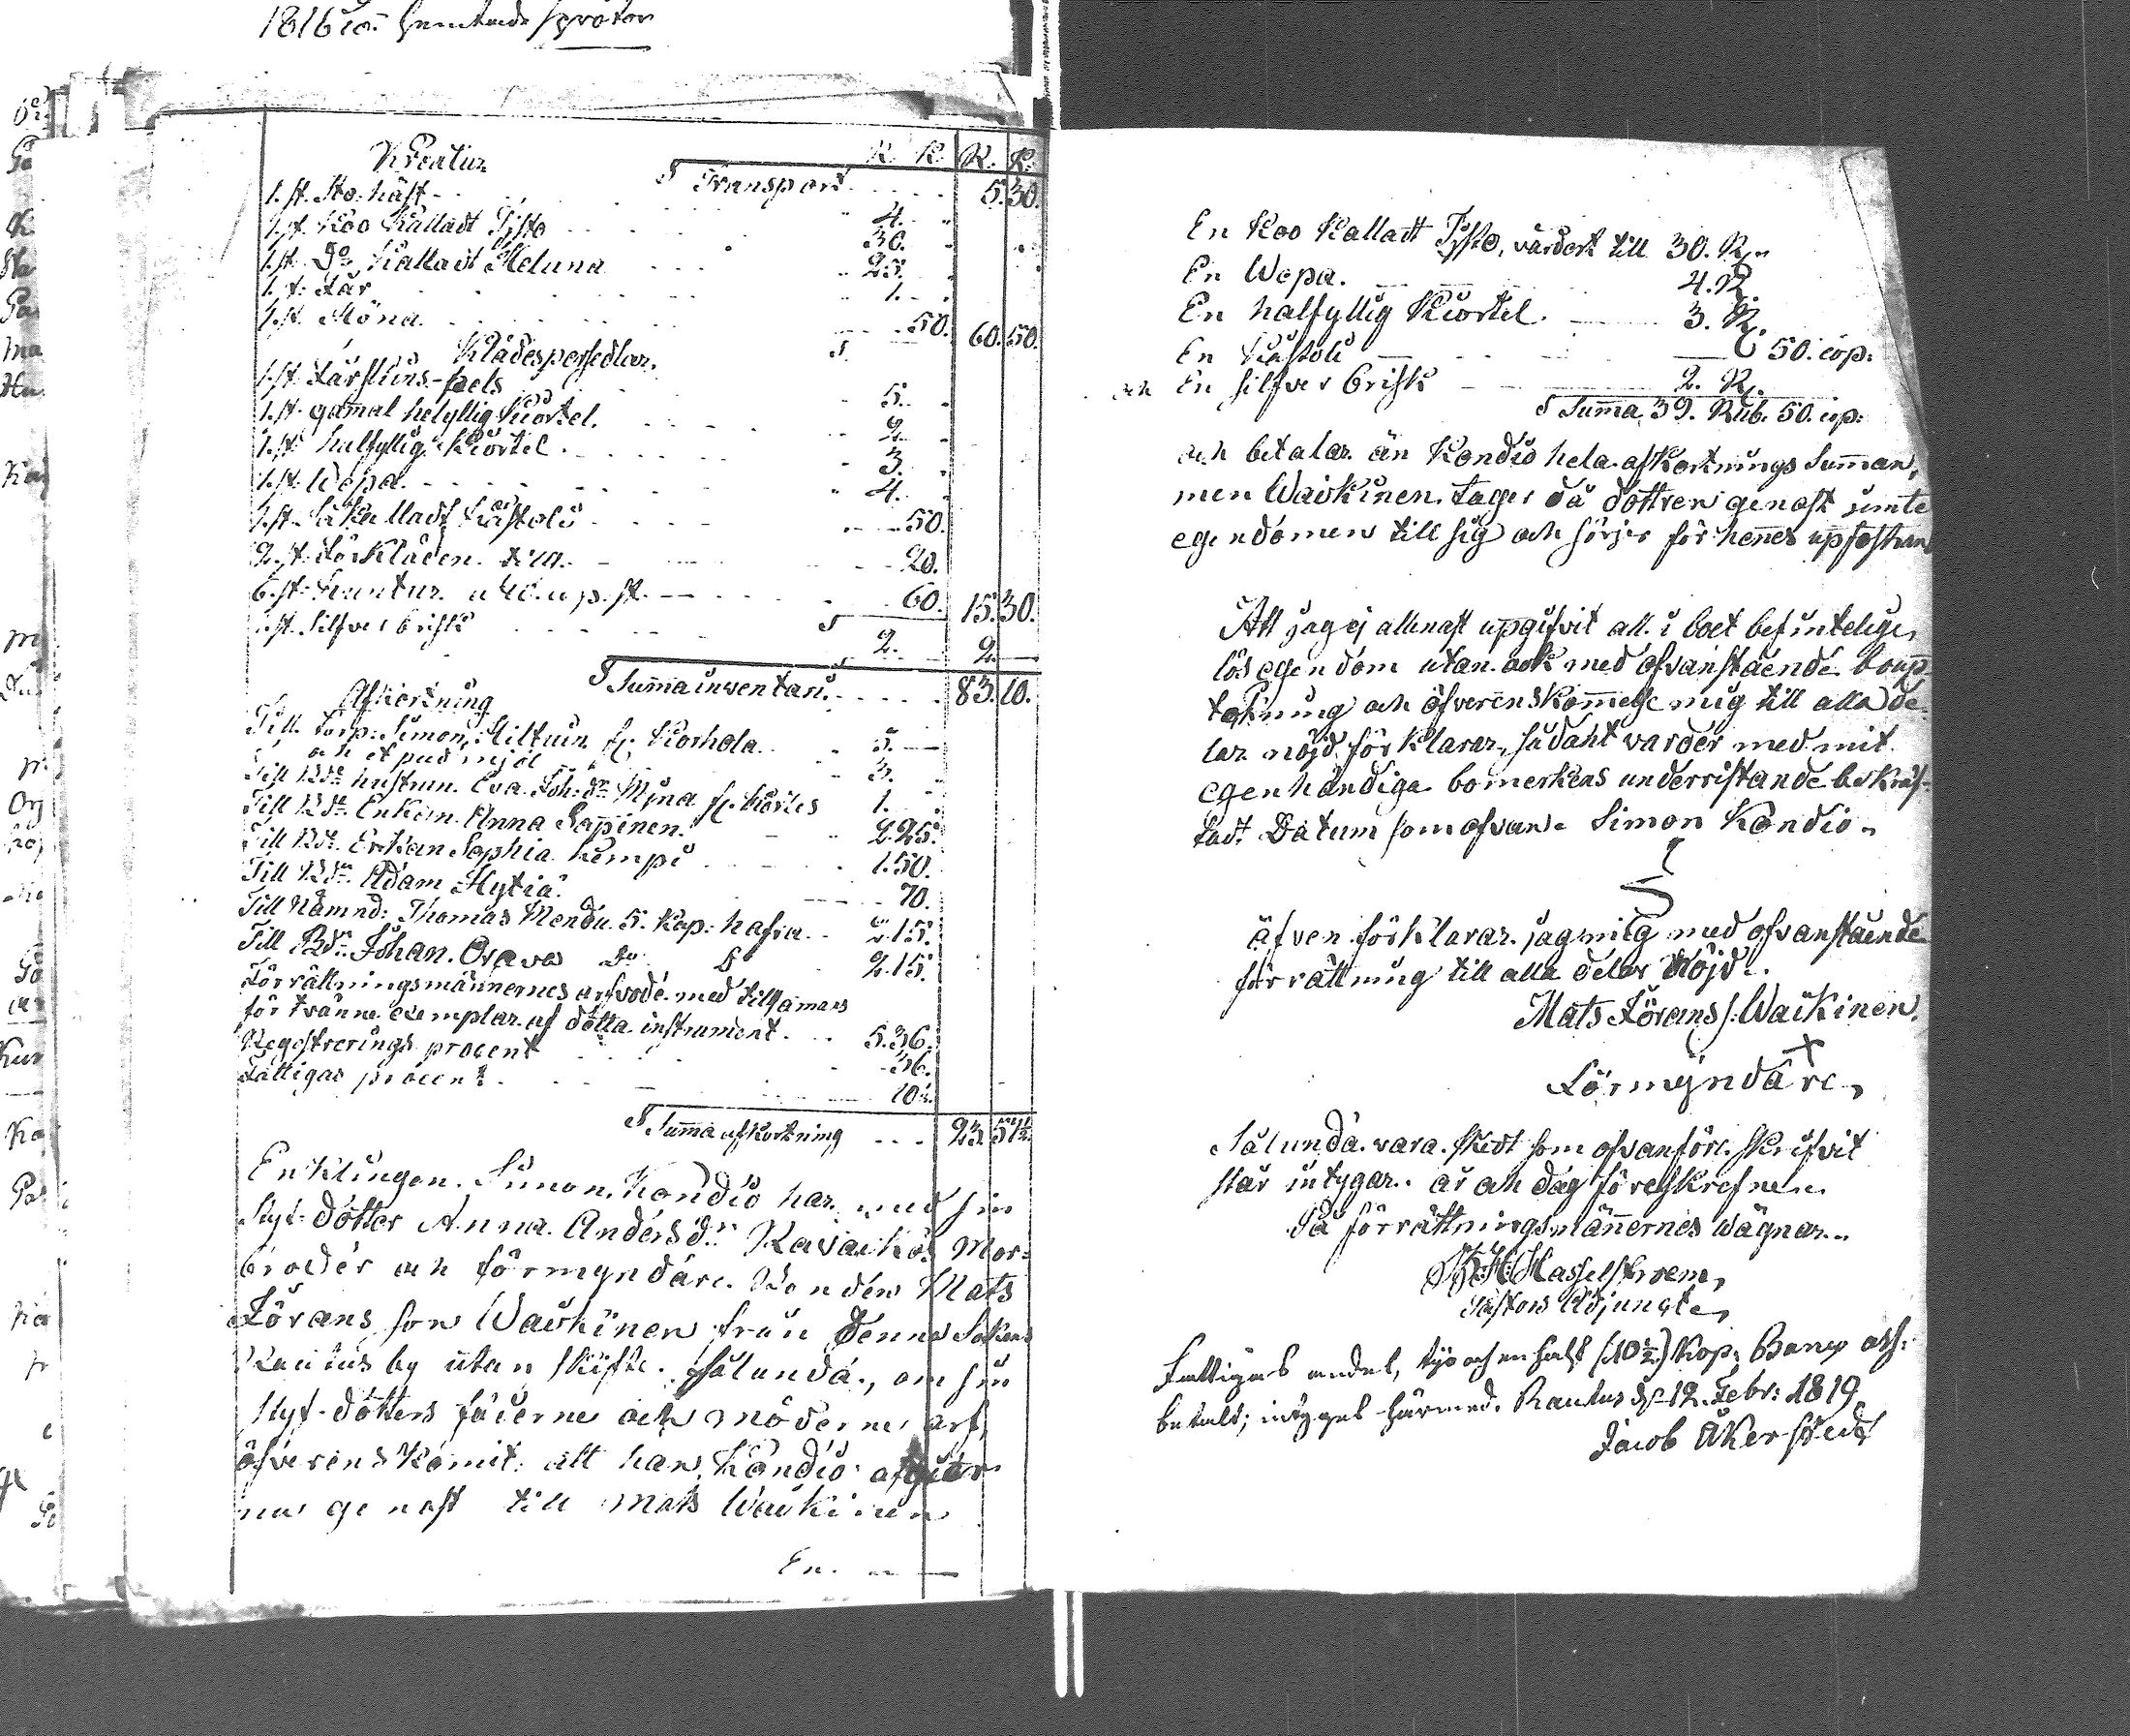 Kreatur R. K. R. K.
S Transport 5. 30.
1. st. Sto häst 4.
1. st. Koo Kalladt Tÿsto 30.
1. st. Do Kalladt Heluna 25.
1. st. Får 1.
1. st. Höna 50. 60. 50.
Klädespersedlar.
1. st. Fårskins-pels 5.
1. st. gamal helyllig Kiortel. 2.
1. st. halfyllig Kiortel. 3.
1. st. Wepa. 4.
1. st. Så Kalladt Kåstoli 50.
2. st. Förkläden 20.
6. st. 60. 15. 30.
1. st. Silfver brisk S 2. 2.
S Summa inventarii 83. 10.
Afkortning
Till Torp: Simon Hiltuin fr. Korhola 5.
och et pud mjöl 3.
Till Bde hustrun Eva Joh: dr Myna fr. 1.
Till Bde Enkan Anna Sapinen. 2. 25.
Till Bde Enkan Sophia Kempi 1. 50.
Till Bdn Adam Hytiä. 70.
Till Nämnd: Thomas Mendu 5. Kap: hafra 2. 15.
Till Bdn Johan Orava Do S 2. 15.
Förrättningsmännernes arfvode med tillhamans
för tvänne exemplar af detta instrument 5. 36.
Regestrerings procent 36.
Fattigas procent 10½.
S Summa afkortning 23. 57½
Enklingen Simon Kondio har med sin
Styf-dotter Anna Anders dr Kavaikos Mor-
broder och förmyndare Bonden Mats
Jörans son Waikinen från denna Sokens
Rautus by utan skifte sålunda, om sin
styf-dotters fäderne och möderne arf,
öfverenskommit: att han, Kondio afgifver
nu genast till Mats Waikinen
En
En Koo Kalladt Tÿsto, värdert till 30. R.
En Wepa. 4. R.
En halfyllig Kiortel. 3. R.
En Kåstoli 50. cop:
och En silfver brisk 2. R.
S Summa 39. Rub. 50. cop:
och betalar än Kondio hela afkortnings Summan,
men Waikinen tager då dottren genast jämte
egendomen till sig och sörjer för hennes upfostran
Att jag ej allenast upgifvit all i boet befintelige
lös egendom utan ock med ofvanstående boup-
tekning och öfverenskommelse mig till alla de-
lar nöjd förklarar, sådant varder med mit
egenhändiga bomerkens underristande bekräf-
tadt Datum som ofvan. Simon Kondio.
äfven förklarar jag mig med ofvanstående
förrättning till alla delar nöjd.
Mats Jörans s: Waikinen.
X
Förmyndare,
Sålunda vara skedt som ofvanföre skrifvit
står intygar. år och dag föreskrefne.
På förrättningsmännernes wägnar.
Hasselstroem,
Pastors Adjuncte,
Fattigas andel, tijo och en half (10½) Kop: Banco ass:
betalt; intygas härmed. Rautus d. 12. Febr: 1819
Jacob Åkerstedt